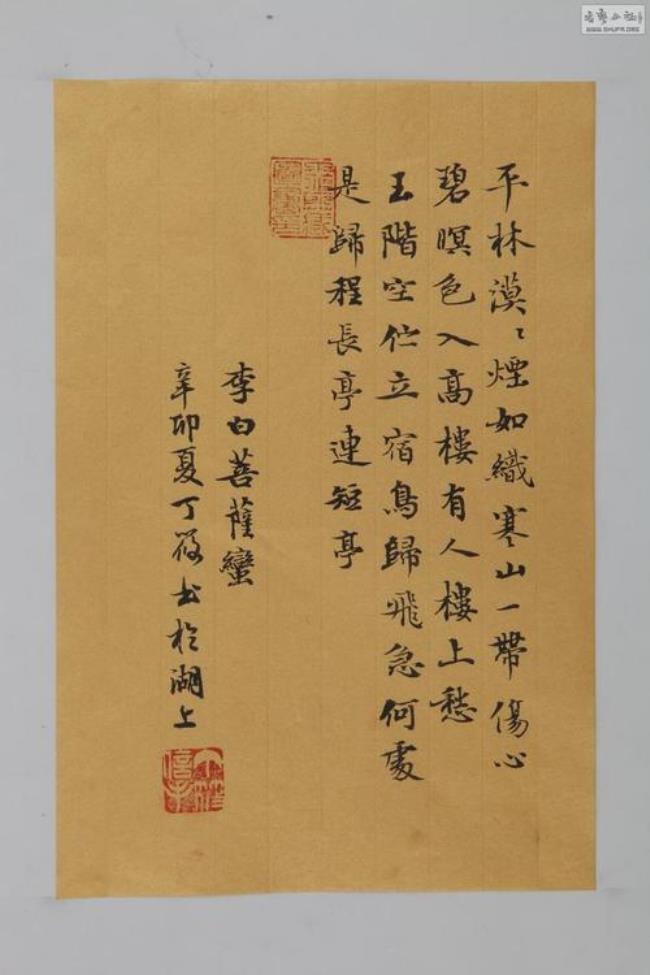 平林漠〻煙如織寒山一帶傷心
碧暝色入高樓有人樓上愁
玉階空伫立宿鳥歸飛急何處
是歸程長亭連短亭
李白菩薩蠻
辛卯夏丁筱書於湖上
WWW.SHUFA.ORG